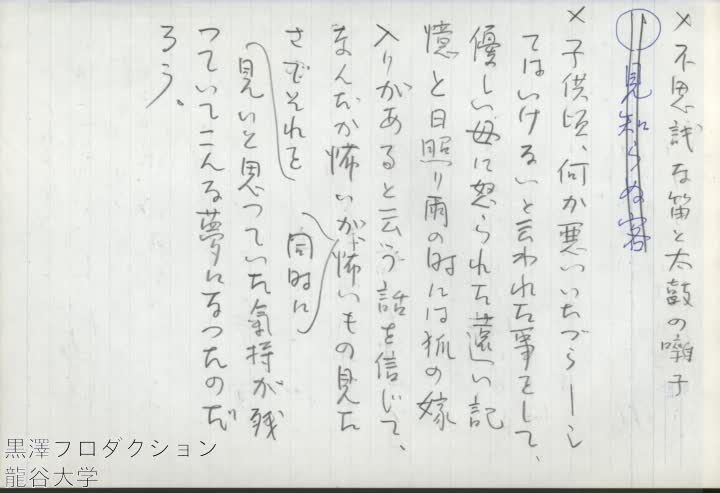 × 不思議な笛と太鼓の囃子
① 見知らぬ客
× 子供頃、何か悪いいたづら──し
てはいけないと言われた事をして、
優しい母に怒られた遠い記
憶と日照り雨の時には狐の嫁
入りがあると云う話を信じて、
なんだか怖いが、怖いもの見た
さでそれを 同時に
見いと思っていた気持が残
っていてこんな夢になったのだ
ろう。
黒澤プロダクション
龍谷大学